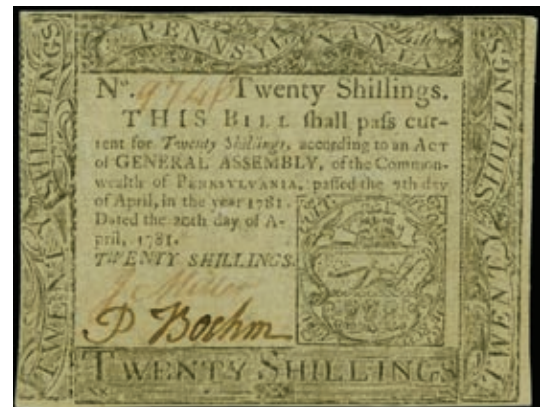 PENNSYLVANIA
TWENTY SHILLINGS
No. 9748 Twenty Shillings.
THIS BILL ſhall paſs cur-
rent for Twenty Shillings, according to an ACT
of GENERAL ASSEMBLY, of the Common-
wealth of PENNSYLVANIA, paſſed the 7th day
of April, in the year 1781.
Dated the 20th day of A-
pril, 1781.
TWENTY SHILLINGS.
Miller
P Boehm
TWENTY SHILLINGS
TWENTY SHILLINGS